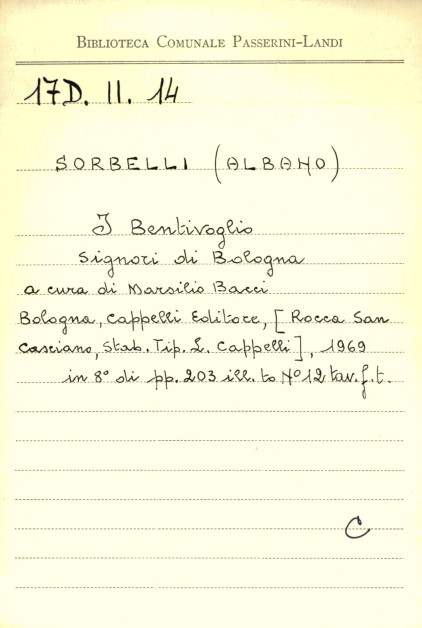 BIBLIOTECA COMUNALE PASSERINI-LANDI
17D. II. 14
SORBELLI (ALBANO)
I Bentivoglio
Signori di Bologna
a cura di Marsilio Bacci
Bologna, Cappelli Editore, [Rocca San
Casciano, Stab. Tip. L. Cappelli], 1969
in 8° di pp. 203 ill. to N° 12 tav. f. t.
C